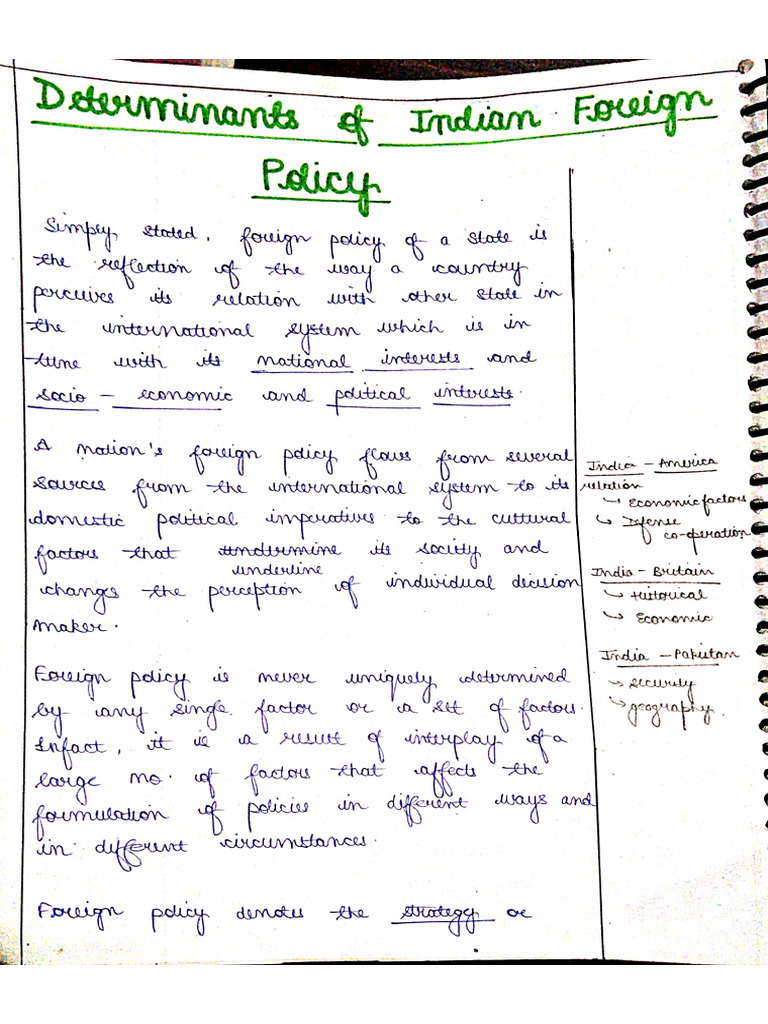 Determinants of Indian Foreign
Policy
Simply stated, foreign policy of a state is
the reflection of the way a country
perceives its relation with other state in
the international system which is in
tune with its national interests and
socio - economic and political interests.
A nation's foreign policy flows from several
sources from the international system to its
domestic political imperatives to the cultural
factors that undermine its society and
underline
changes the perception of individual decision
maker.
Foreign policy is never uniquely determined
by any single factor or a set of factors.
Infact, it is a result of interplay of a
large no. of factors that affects the
formulation of policies in different ways and
in different circumstances.
Foreign policy denotes the strategy or
India - America
relation
↳ Economic factors
↳ Defense
co-operation
India - Britain
↳ Historical
↳ Economic
India - Pakistan
→ security
↳ geography.